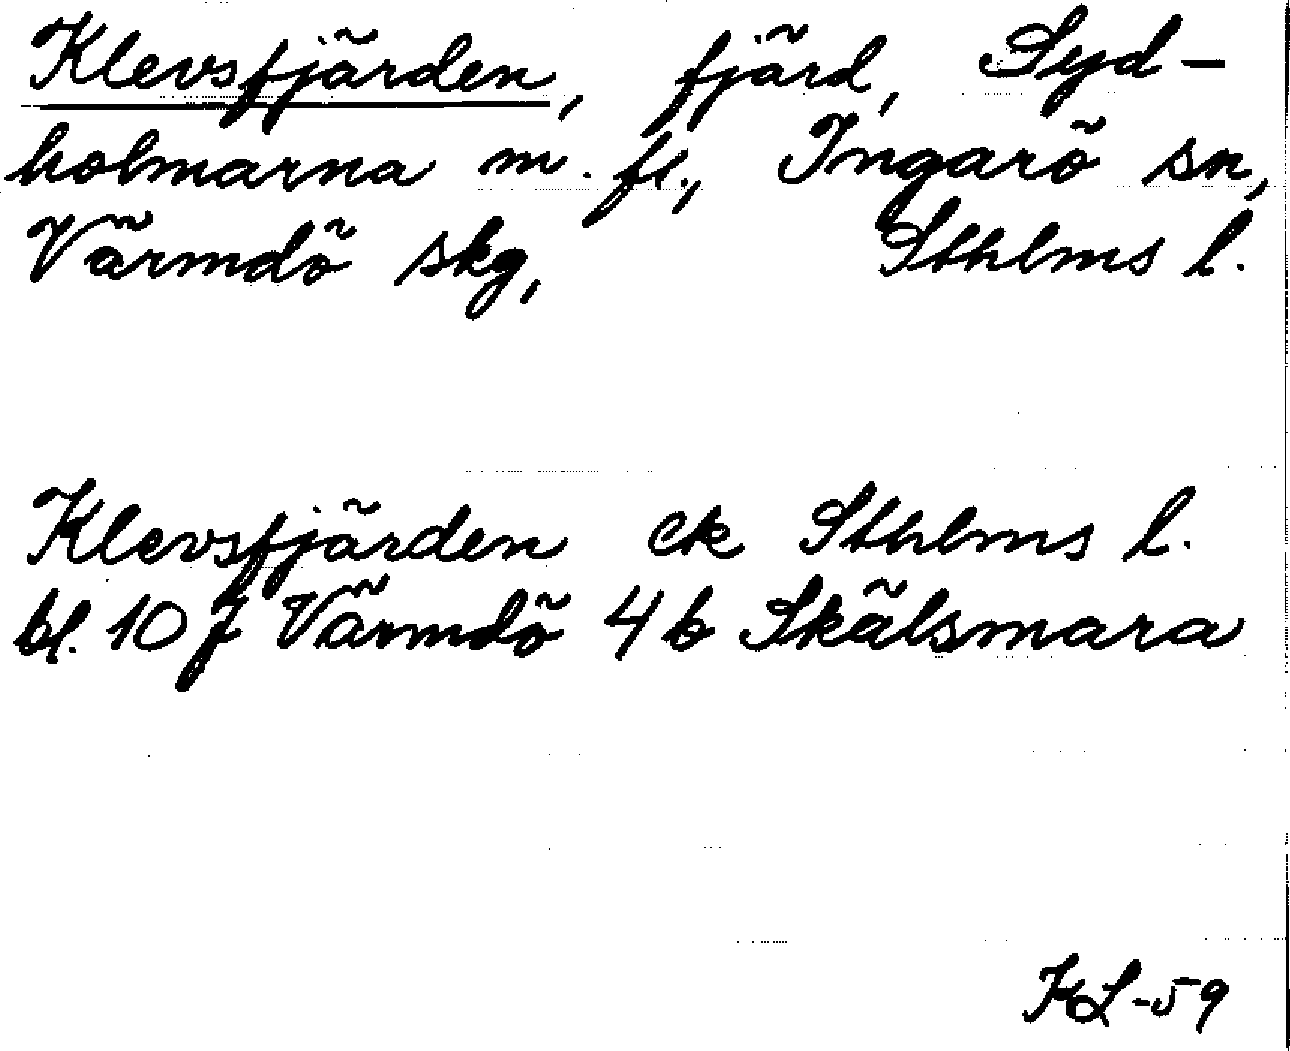 Klevsfjärden, fjärd, Syd-
holmarna m. fl., Ingarö sn,
Värmdö skg, Sthlms l.
Klevsfjärden ek Sthlms l.
bl. 10 J Värmdö 4 b Skälsmara
KL-59